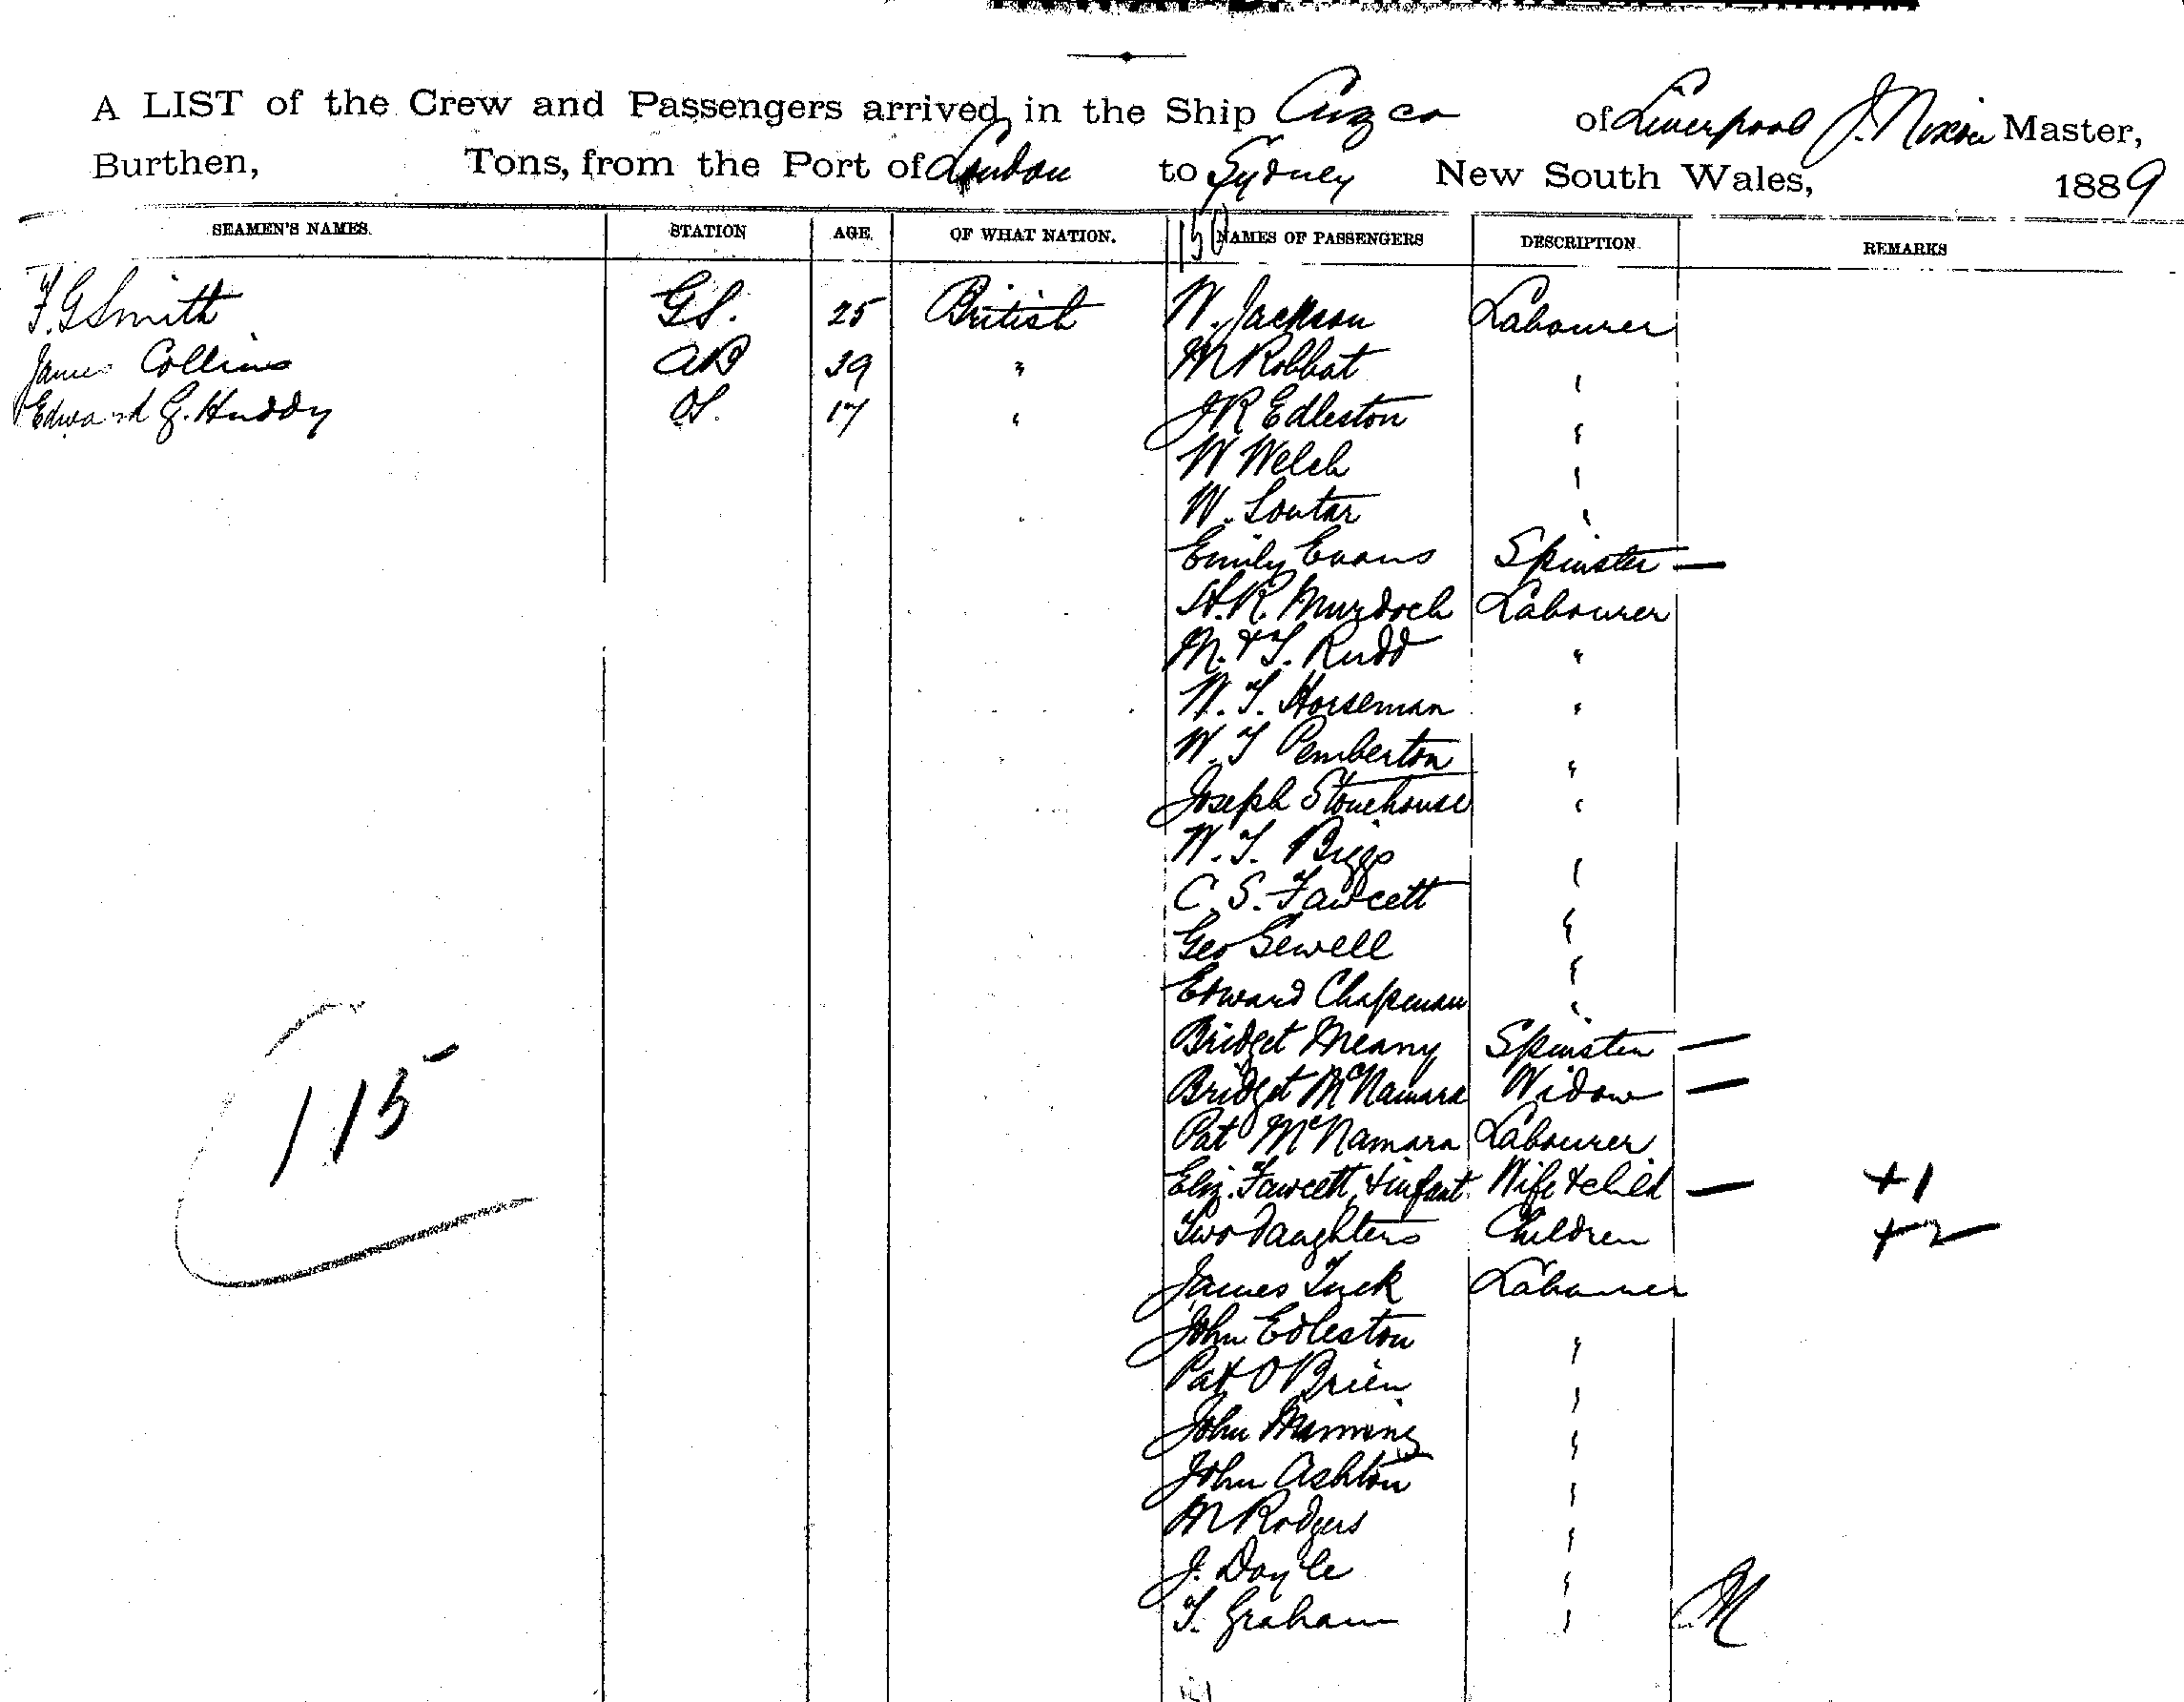 A LIST of the Crew and Passengers arrived in the Ship Cuzco of Liverpool J. Nixon Master,
Burthen, Tons, from the Port of London to Sydney New South Wales, 1889
SEAMEN'S NAMES. STATION AGE. OF WHAT NATION. 150 NAMES OF PASSENGERS DESCRIPTION. REMARKS
F. G Smith GS. 25 British W. Jackson Labourer
James Collins AB 39 " M Robbat "
Edward G. Huddy OS. 17 " J R Edleston "
W Welch "
W. Soutar "
Emily Evans Spinster —
H. R. Murdoch Labourer
M. & T. Rudd "
W. T. Horseman "
W. T Pemberton "
Joseph Stonehouse "
W. T. Biggs "
C. S. Fawcett "
Geo Sewell "
Edward Chapman "
Bridget Meany Spinster —
Bridget McNamara Widow —
Pat McNamara Labourer
Eliz. Fawcett, & infant Wife & child — +1
Two Daughters Children +2
James Tuck Labourer
John Edleston "
Pat O Brien "
John Manning "
John Ashton "
M Rodgers "
J. Doyle "
T. Graham " M
115